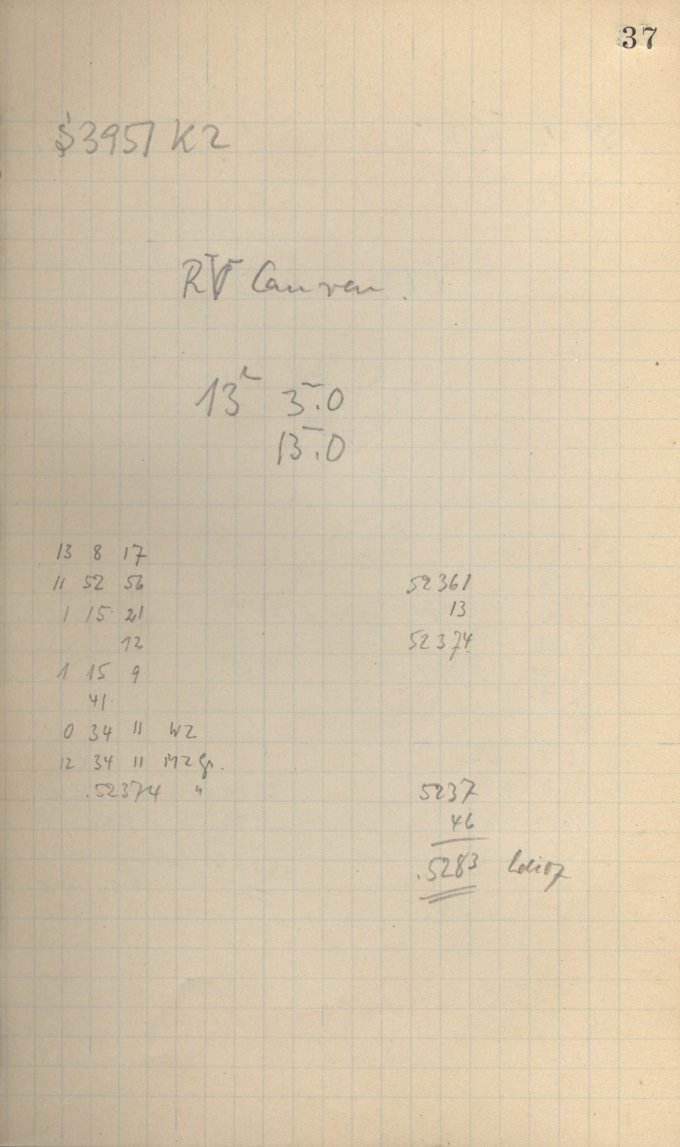 37
$3951 K2
RV Can ven.
13h 3.0
13.0
13 8 17
11 52 56
1 15 21
12
1 15 9
41
0 34 11 WZ
12 34 11 MZ Gr.
.52374 "
52361
13
52374
5237
46
.5283